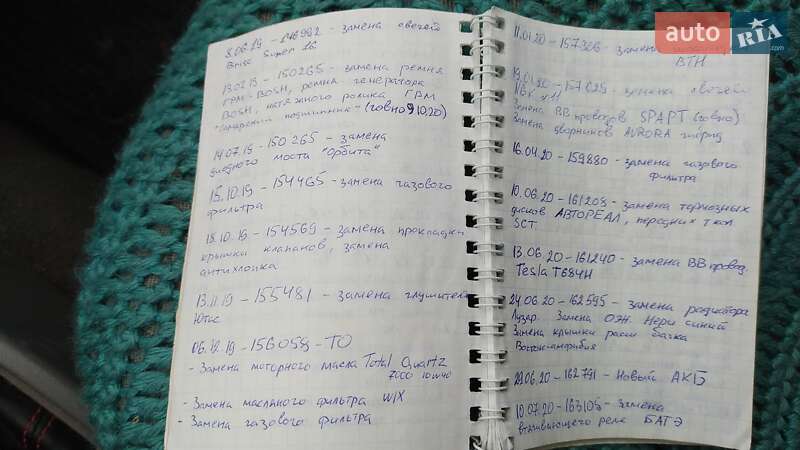 8.06.19 - 146992 - замена свечей
Brisk Super 16
13.07.19 - 150265 - замена ремня
ГРМ - BOSH, ремня генератора
BOSH, натяжного ролика ГРМ
"Самарский подшипник" (говно 9.10.20)
14.07.19 - 150265 - замена
диодного моста "Орбита"
15.10.19 - 154465 - замена газового
фильтра
18.10.19 - 154569 - замена прокладки
крышки клапанов, замена
антихлопка
13.11.19 - 155481 - замена глушителя
Ютас
06.12.19 - 156058 - ТО
- Замена моторного масла Total Quartz
7000 10w40
- Замена масляного фильтра WIX
- Замена газового фильтра
11.01.20 - 157306 - замена
ВТН
19.01.20 - 157629 - замена свечей
NGK №11
Замена ВВ проводов SPAPT (говно)
Замена дворников AVRORA гибрид
16.04.20 - 159880 - замена газового
фильтра
10.06.20 - 161208 - замена тормозных
дисков АВТОРЕАЛ, передних т кол
SCT
13.06.20 - 161240 - замена ВВ провод.
Tesla T684H
24.06.20 - 162595 - замена радиатора
Лузар. Замена ОЖ Нери синий
Замена крышки расш бачка
Восток-амфибия
29.06.20 - 162791 - Новый АКБ
10.07.20 - 163105 - замена
втягивающего реле БАТЭ
auto RIA